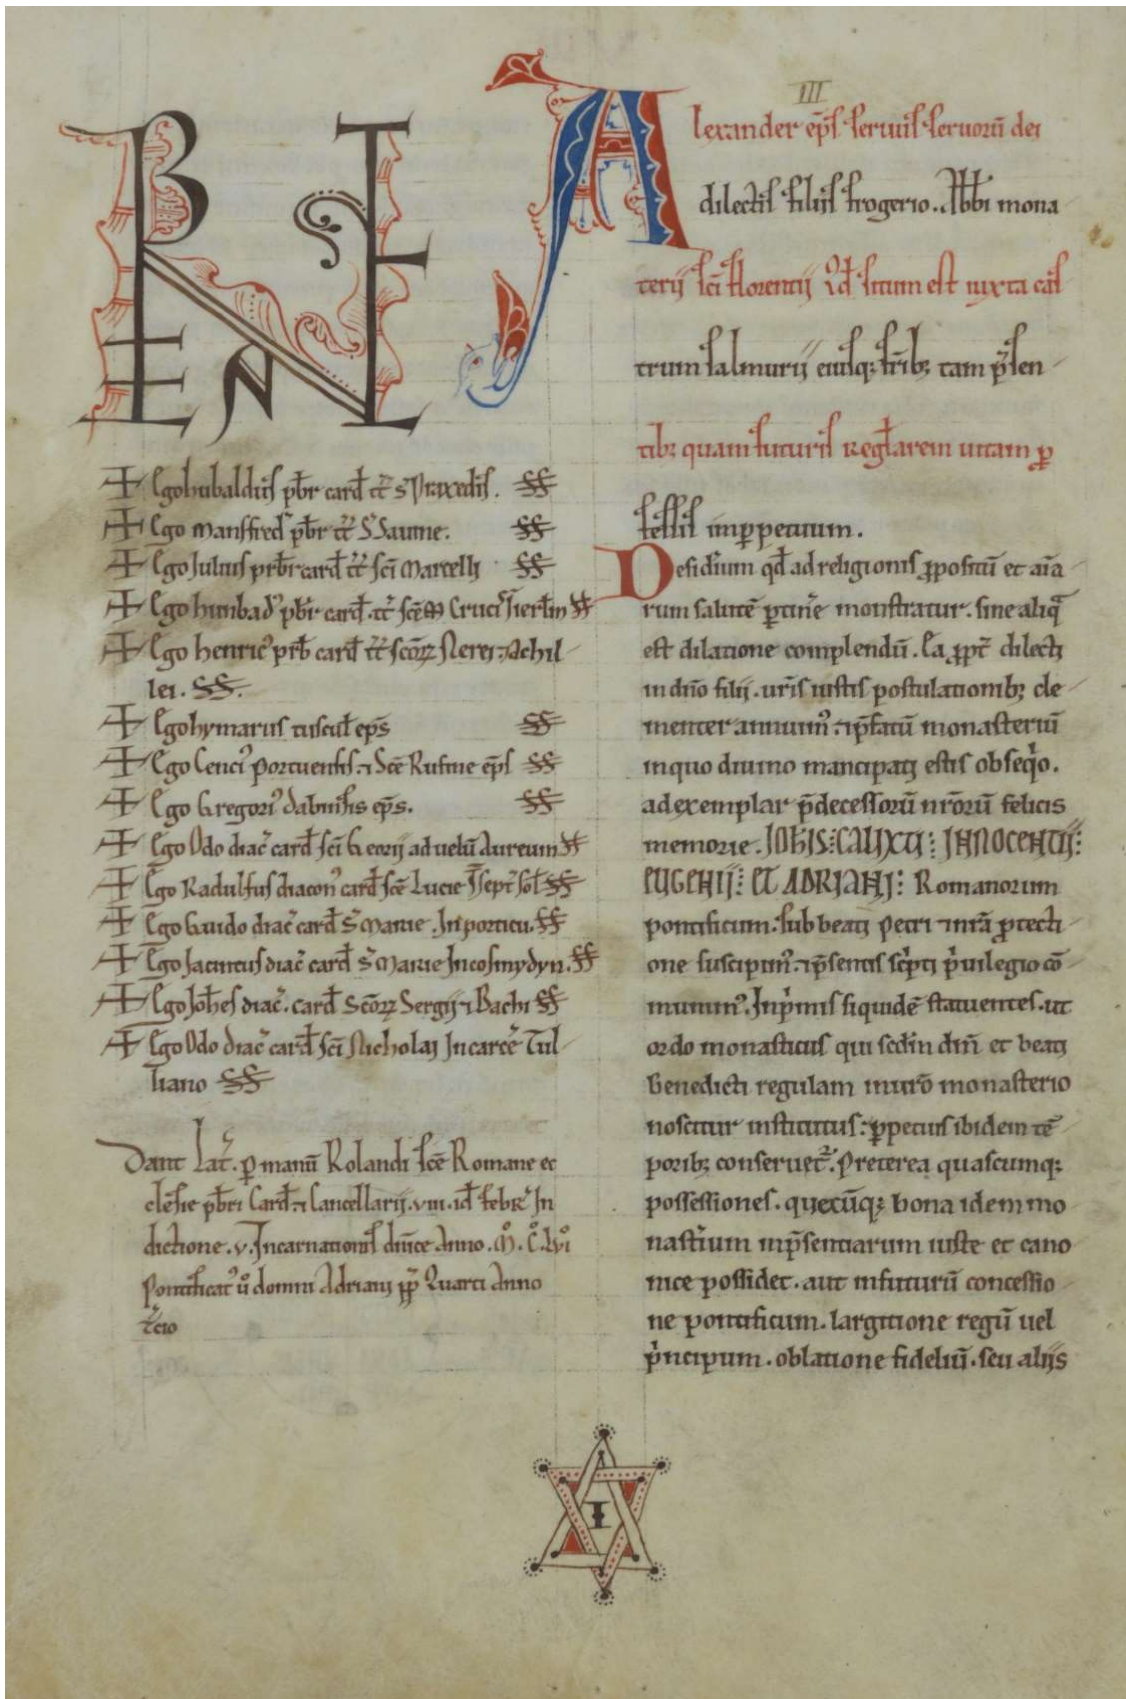 BENE VALETE
✠ Ego hubaldus pb̄r card̄ tt̄ s̄ Praxedis. SS
✠ Ego Manfred' pb̄r tt̄ S̄ Sauine. SS
✠ Ego Iulius prb̄r card̄ tt̄ sc̄i Marcelli SS
✠ Ego hunbad' pb̄r card̄. tt̄ sc̄e Cruci' Ierl̄m SS
✠ Ego henric' prb̄ card̄ tt̄ sc̄oꝝ Nerei ⁊ Achil-
lei. SS.
✠ Ego hymarus tuscul̄ ep̄s SS
✠ Ego Cenci' Portuensis ⁊ Sc̄e Rufine ep̄s SS
✠ Ego Gregori' Sabinensis ep̄s. SS
✠ Ego Odo diac̄ card̄ sc̄i Georii ad uelū Aureum SS
✠ Ego Radulfus diacon' card̄ sc̄e Lucie I Sept̄ sol̄ SS
✠ Ego Guido diac̄ card̄ S̄ Marie. In porticu. SS
✠ Ego Iacintus diac̄ card̄ S̄ Marie In cosmydyn. SS
✠ Ego Joh̄es diac̄. card̄ Sc̄oꝝ Sergij ⁊ Bachi SS
✠ Ego Odo diac̄ card̄ sc̄i Nicholai In carcer̄e Tul-
liano SS
Dant Lat̄. ꝑ manū Rolandi sc̄e Romane ec
clesie pb̄ri Card̄. ⁊ Cancellarij. viii. id̄ febr̄ In
dictione. v. Incarnationis diuīce Anno. M. C. Lvi
Pontificat' ů domni Adriani pp̄ Quarti Anno
t̄cio
III
Alexander ep̄s seruus seruorū dei
dilectis filiis frogerio. Abb̄i mona
terij sc̄i florentij qd̄ situm est iuxta cas
trum salmurij eiusqꝫ fr̄ibꝫ tam p̄sen-
tibꝫ quam futuris regl̄arem uitam ꝓ
fessis imꝑpetuum.
Desid̄ium qd̄ ad religionis ꝓpositū et aīa
rum salutē ꝑtin̄e monstratur. sine aliq̄
est dilatione complendū. Ea ꝓpt̄ dilecti
in dn̄o filij. ur̄is iustis postulationibꝫ cle-
menter annuim'. ⁊ p̄fatū monasteriū
in quo diuino mancipati estis obseq̊o.
ad exemplar p̄decessorū nr̄orū felicis
memorie. JOhIS: CALIXTI: INNOCENTII:
EUGENII: ET ADRIANI: Romanorum
pontificum. sub beati Petri ⁊ nr̄a ꝓtecti-
one suscipim'. ⁊ p̄sentis sc̄pti p̄uilegio cō-
munim'. Inp̄mis siquidē statuentes. ut
ordo monasticus qui scd̄m dn̄i et beati
Benedicti regulam in ur̄o monasterio
noscitur institutus: ꝑpetuis ibidem tē-
poribꝫ conseruet̄. Preterea quascumqꝫ
possessiones. quecūqꝫ bona idem mo
nast̄ium inp̄sentiarum iuste et cano
nice possidet. aut in futurū concessio-
ne pontificum. largitione regū uel
p̄ncipum. oblatione fidelīū. seu aliis
I